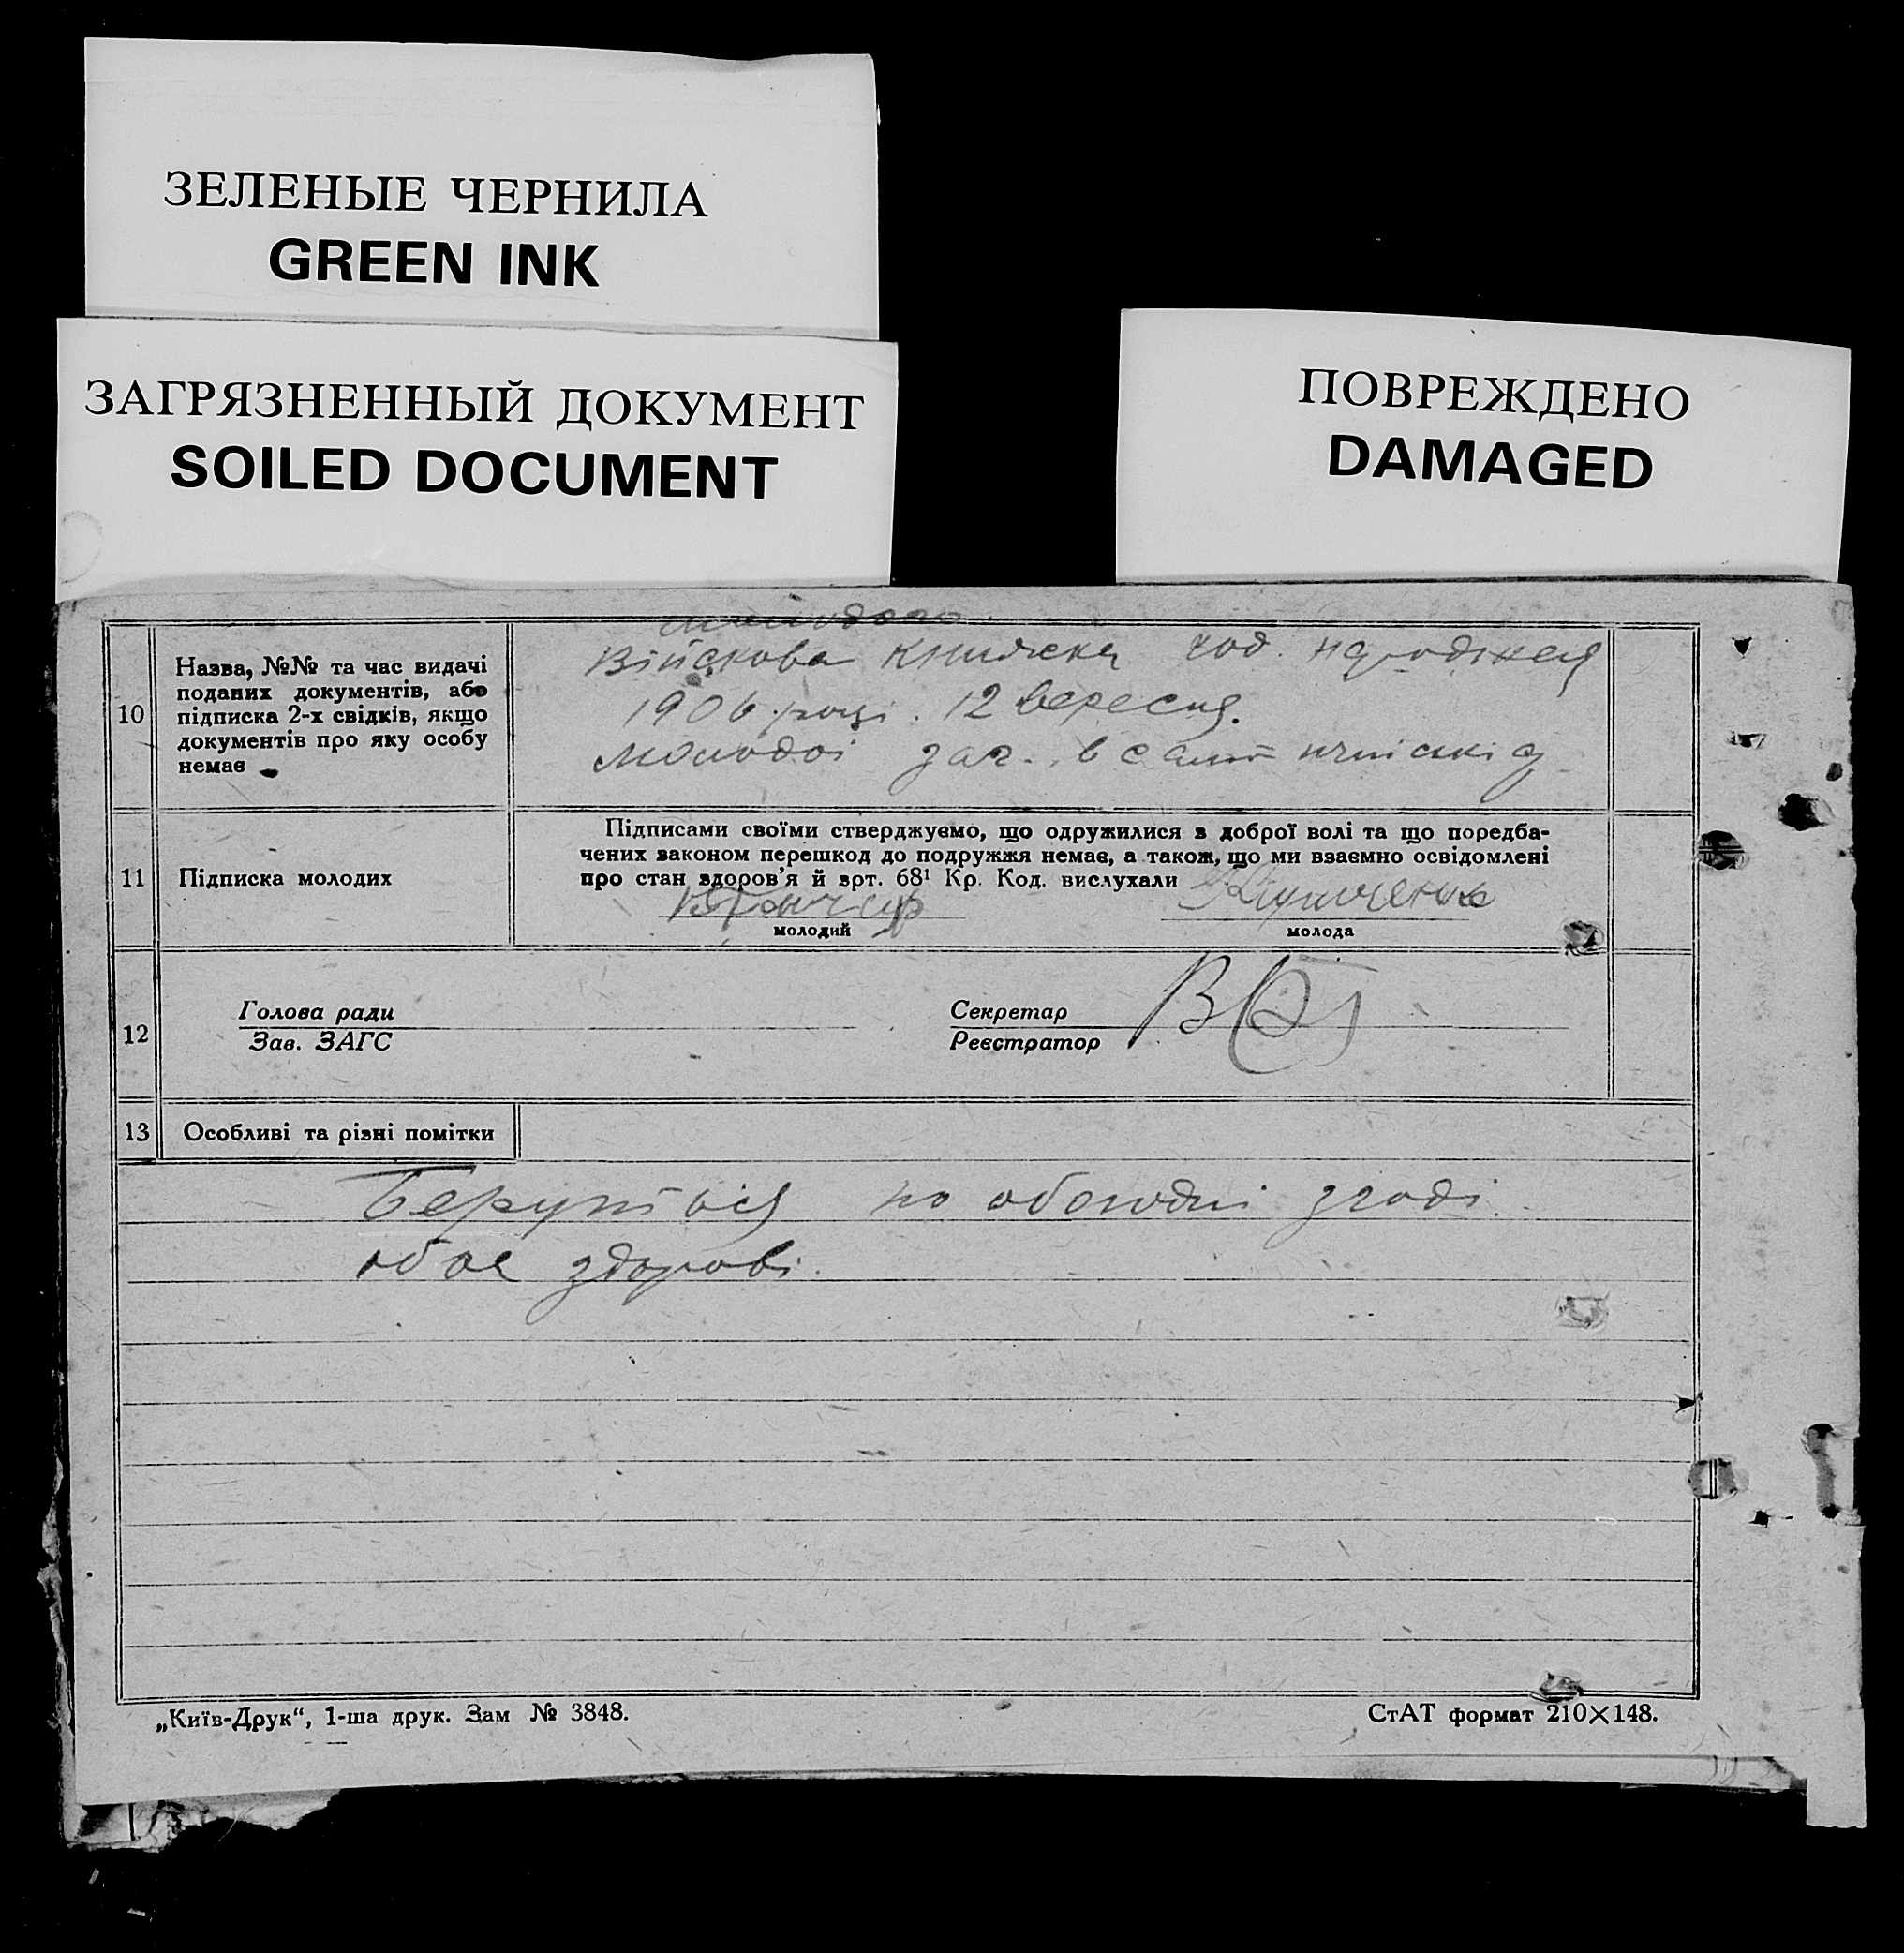 ЗЕЛЕНЫЕ ЧЕРНИЛА
GREEN INK
ЗАГРЯЗНЕННЫЙ ДОКУМЕНТ
SOILED DOCUMENT
ПОВРЕЖДЕНО
DAMAGED
10
Назва, №№ та час видачі
поданих документів, або
підписка 2-х свідків, якщо
документів про яку особу
немає
молодого
Військова книжка год. народження
1906 році. 12 вересня.
Молодої заг. в
11
Підписка молодих
Підписами своїми стверджуємо, що одружилися з доброї волі та що поредба-
чених законом перешкод до подружжя немає, а також, що ми взаємно освідомлені
про стан здоров'я й арт. 68¹ Кр. Код. вислухали
молодий
молода
12
Голова ради
Зав. ЗАГС
Секретар
Реєстратор
13
Особливі та різні помітки
Беруться по обоюдні згоді.
обоє здорові.
„Київ-Друк“, 1-ша друк. Зам № 3848.
СтАТ формат 210×148.